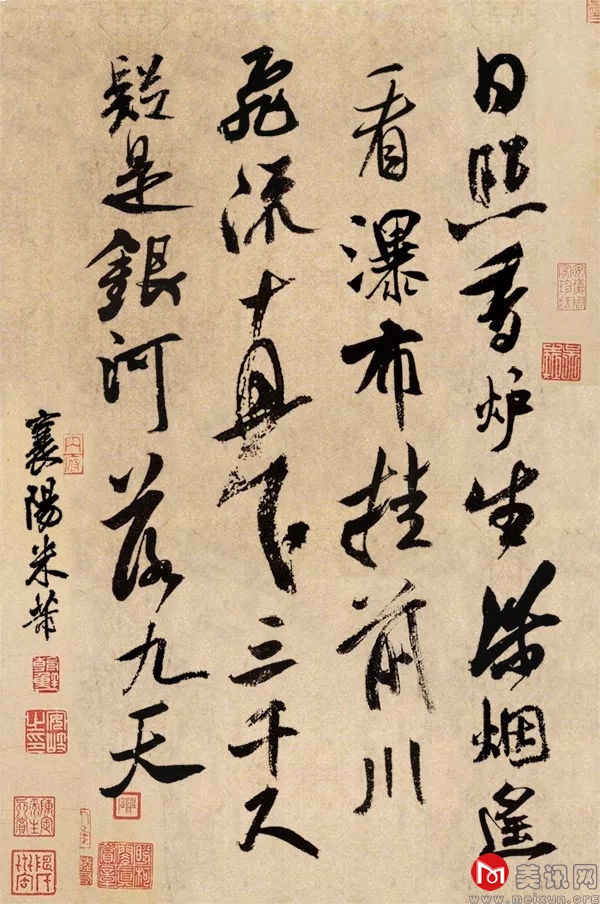 日照香炉生紫烟遙
看瀑布挂前川
飛流直下三千尺
疑是銀河落九天
襄陽米芾
美讯网
www.meixun.org